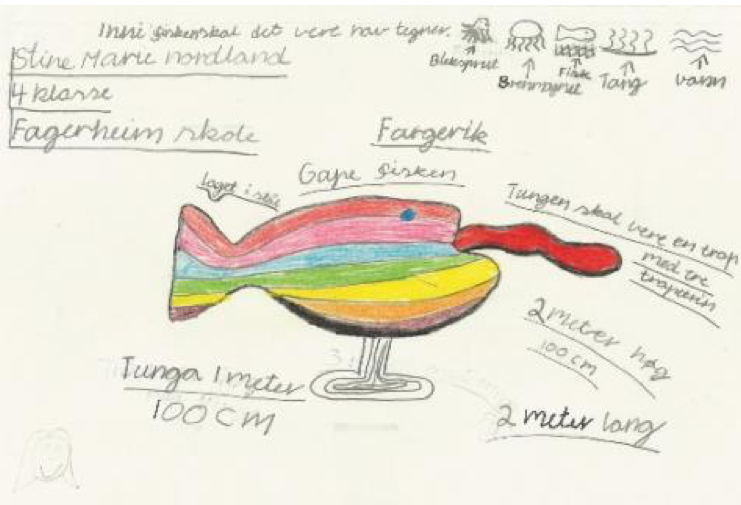 Inni fisken skal det vere hav tegner.
Bleksprut
Brennmanet
Fisk
Tang
vann
Stine Marie nordland
4 klasse
Fagerheim skole
Fargerik
Gape fisken
laget i stål
Tungen skal vere en trap
med tre
trapetrin
2 meter høg
100 cm
2 meter lang
Tunga 1 meter
100 CM